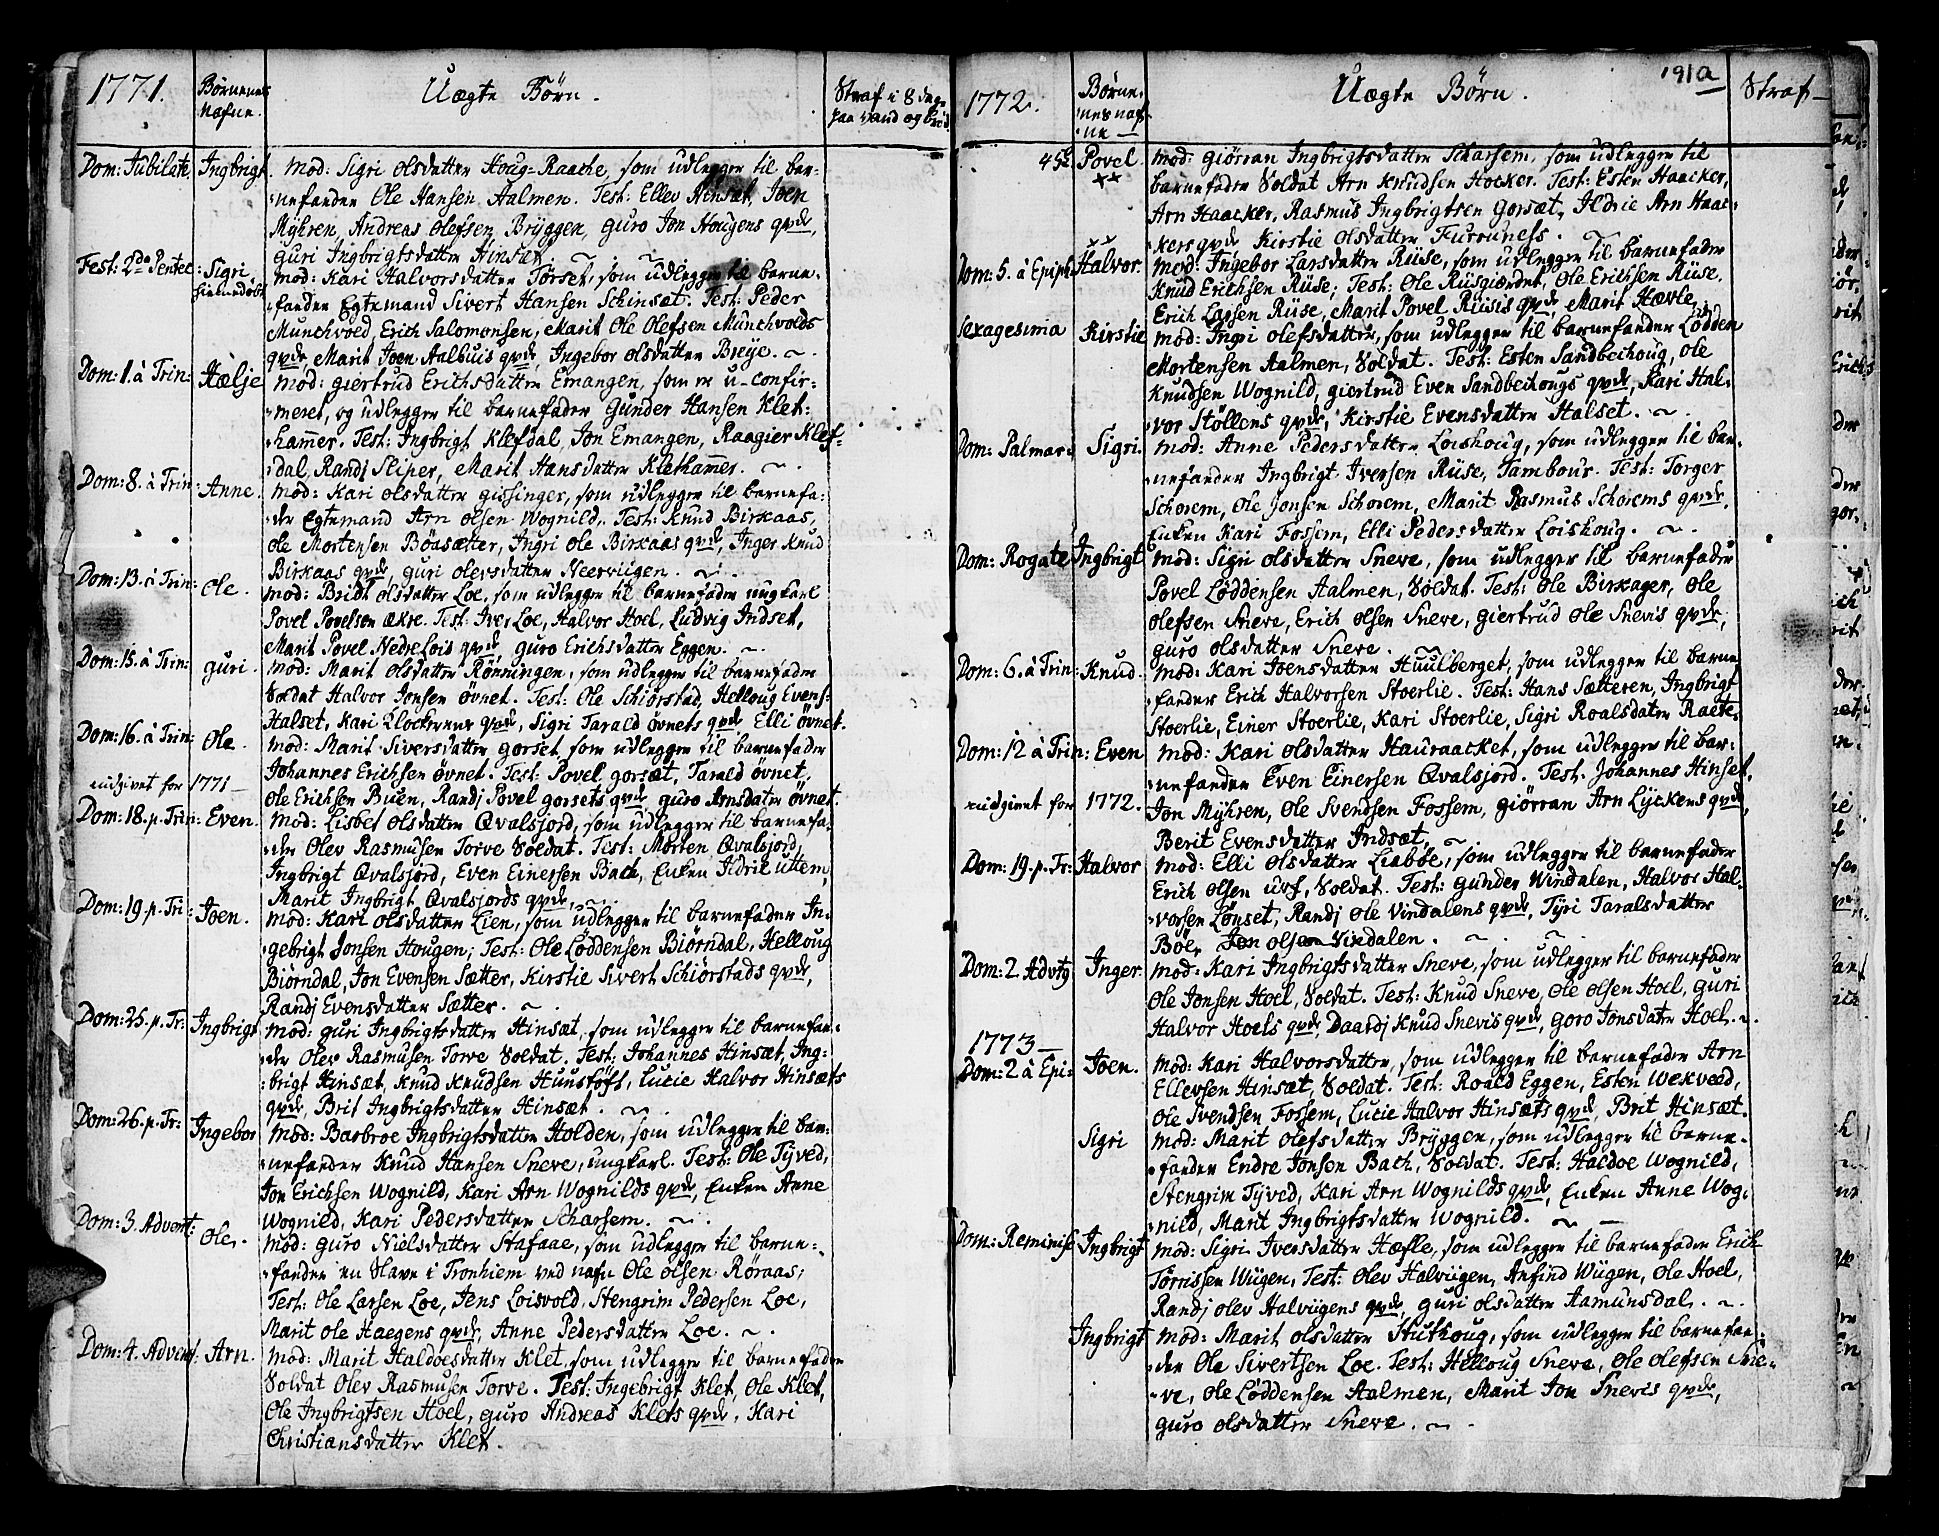 1771.
Børnenes
Nafne.
Uægte Børn.
Straf i 8 dage
paa vand og brød
Dom: Jubilate
Ingbrigt.
Mod: Sigri Olsdatter Houg-Raache, som udlegger til bar-
nefander Ole Hansen Aalmen. Test: Ellev Hinsæt, Joen
Myhren, Andreas Olefsen Bryggen, Guro Jon Hougens qvde,
Guri Ingbrigtsdatter Hinsæt.
Fest: 2da Pentec:
Sigri
hiemedøbt
Mod: Kari Halvorsdatter Torset, som udlegger til barne-
fander Egtemand Sivert Hansen Schinsæt. Test: Peder
Munchvold, Erich Salomonsen, Marit Ole Olefsen Munchvolds
qvde, Marit Joen Aalbuis qvde, Ingebor Olsdatter Breye.
Dom: 1. à Trin:
Hælje
Mod: Giertrud Erichsdatter Emangen, som er u-confir-
meret, og udlegger til barnefader Gunder Hansen Klet-
hammer. Test: Ingbrigt Klefdal, Jon Emangen, Raagier Klef-
dal, Randj Sliper, Marit Hansdatter Klethammer.
Dom: 8. à Trin:
Anne.
Mod: Kari Olsdatter Gissinger, som udlegger til barnefa-
der Egtemand Arn Olsen Wognild. Test: Knud Birkaas,
Ole Mortensen Böasætter, Ingri Ole Birkaas qvde, Inger Knud
Birkaas qvde, Guri Olevsdatter Neerviigen.
Dom: 13. à Trin:
Ole.
Mod: Bridt Olsdatter Loe, som udlegger til barnefader ungkarl
Povel Povelsen Ækre. Test: Iver Loe, Halvor Hoel, Ludvig Indset,
Marit Povel Nedre Lois qvde, Guro Erichsdatter Eggen.
Dom: 15. à Trin:
Guri.
Mod: Marit Olsdatter Rønningen, som udlegger til barnefader
Soldat Halvor Jonsen Øvnet. Test: Ole Schiørstad, Helloug Evens-
Halset, Kari Klockerens qvde, Sigri Tarald Øvnets qvde, Elli Øvnet.
Dom: 16. à Trin:
Ole.
Mod: Marit Siversdatter Gorset, som udlegger til barnefader
Johannes Erichsen Øvnet. Test: Povel Gorsæt, Tarald Øvnet,
udgivet for 1771
Ole Erichsen Buen, Randj Povel Gorsets qvde, Guro Arnsdatr Øvnet.
Dom: 18. p. Trin:
Even.
Mod: Lisbet Olsdatter Qvalsjord, som udlegger til barnefa-
der Olev Rasmusen Torve Soldat. Test: Morten Qvalsjord,
Ingbrigt Qvalsjord, Even Einersen Bach, Enken Ildrie Uttem,
Marit Ingbrigt Qvalsjords qvde.
Dom: 19. p. Tri:
Joen.
Mod: Kari Olsdatter Lien, som udlegger til barnefader In-
gebrigt Jonsen Hougen; Test: Ole Løddensen Biørndal, Helloug
Biørndal, Jon Evensen Sætter, Kirstie Sivert Schiörstads qvde,
Randj Evensdatter Sætter.
Dom: 25. p. Tr:
Ingbrigt
Mod: Guri Ingbrigtsdatter Hinsæt, som udlegger til barnefan-
der Olev Rasmusen Torve Soldat. Test: Johannes Hinsæt, Ing-
brigt Hinsæt, Knud Knudsen Hunstöft, Lucie Halvor Hinsæts
qvde, Brit Ingbrigtsdatter Hinsæt.
Dom: 26. p. Tr:
Ingebor
Mod: Barbroe Ingbrigtsdatter Holden, som udlegger til bar-
nefander Knud Hansen Sneve, ungkarl. Test: Ole Tyved,
Jon Erichsen Wognild, Kari Arn Wognilds qvde, Enken Anne
Wognild, Kari Pedersdatter Scharsem.
Dom: 3. Advent:
Ole.
Mod: Guro Nielsdatter Stafaae, som udlegger til barne-
fander en Slave i Tronhiem ved nafn Ole Olsen Røraas;
Test: Ole Larsen Loe, Jens Loisvold, Stengrim Pedersen Loe,
Marit Ole Haegens qvde, Anne Pedersdatter Loe.
Dom: 4. Advent:
Arn.
Mod: Marit Haldoesdatter Klet, som udlegger til barnefader
Soldat Olev Rasmusen Torve. Test: Ingebrigt Klet, Ole Klet,
Ole Ingbrigtsen Hoel, Guro Andreas Klets qvde, Kari
Christiansdatter Klet.
1772.
Børne-
nes naf-
ne
Uægte Børn.
191a
Straf
Povel.
Mod: Giørran Ingbrigtsdatter Scharsem, som udlegger til
barnefader Soldat Arn Knudsen Hocker. Test: Esten Haacker,
Arn Haacker, Rasmus Ingbrigtsen Gorsæt, Ildrie Arn Haac-
kers qvde Kirstie Olsdatter Furruness.
Dom: 5. à Epiph:
Halvor.
Mod: Ingebor Larsdatter Riise, som udlegger til barnefader
Knud Erichsen Riise; Test: Ole Riisgiærdet, Ole Erichsen Riise,
Erich Larsen Riise, Marit Povel Riisis qvde, Marit Hævle.
Sexagesima
Kirstie
Mod: Ingri Olefsdatter, som udlegger til barnefander Lødden
Mortensen Aalmen, Soldat. Test: Esten Sandbechoug, Ole
Knudsen Wognild, Giertrud Even Sandbechougs qvde, Kari Hal-
vor Støllens qvde, Kirstie Evensdatter Halset.
Dom: Palmar:
Sigri.
Mod: Anne Pedersdatter Loishoug, som udlegger til bar-
nefander Ingbrigt Iversen Riise, Tambour. Test: Torger
Schorem, Ole Jonsen Schorem, Marit Rasmus Schorems qvde,
Enken Kari Fossem, Elli Pedersdatter Loishoug.
Dom: Rogate
Ingbrigt
Mod: Sigri Olsdatter Sneve, som udlegger til barnefader
Povel Løddensen Aalmen, Soldat. Test: Ole Birkager, Ole
Olefsen Sneve, Erich Olsen Sneve, Giertrud Ole Snevis qvde,
Guro Olsdatter Sneve.
Dom: 6. à Trin:
Knud.
Mod: Kari Joensdatter Huulberget, som udlegger til barne-
fander Erich Halvorsen Stoerlie. Test: Hans Sætteren, Ingbrigt
Stoerlie, Einer Stoerlie, Kari Stoerlie, Sigri Roalsdater Raete.
Dom: 12 à Trin:
Even
Mod: Kari Olsdatter Hauraacket, som udlegger til bar-
nefander Even Einersen Qvalsjord. Test: Johannes Hinset,
udgivet for 1772.
Jon Myhren, Ole Svendsen Fossem, Giörran Arn Lyckens qvde,
Berit Evensdatter Indsæt,
Dom: 19. p. Tr:
Halvor
Mod: Elli Olsdatter Liabøe, som udlegger til barnefader
Erich Olsen Urf, Soldat. Test: Gunder Windalen, Halvor Hal-
vorsen Lønset, Randj Ole Vindalens qvde, Tyri Taralsdatter
Böe, Jon Olsen Vindalen.
Dom: 2. Advtg
Inger.
Mod: Kari Ingbrigtsdatter Sneve, som udlegger til barnefader
Ole Jonsen Hoel, Soldat. Test: Knud Sneve, Ole Olsen Hoel, Guri
Halvor Hoels qvde, Daardj Knud Snevis qvde, Goro Jonsdatr Hoel.
1773
Dom: 2 à Epi:
Joen.
Mod: Kari Halvorsdatter, som udlegger til barnefader Arn
Ellevsen Hinsæt, Soldat. Test: Roald Eggen, Esten Wekveed,
Ole Svendsen Fossem, Lucie Halvor Hinsæts qvde, Brit Hinsæt.
Sigri
Mod: Marit Olefsdatter Bryggen, som udlegger til barne-
fander Endre Jonsen Bach, Soldat. Test: Haldoe Wognild,
Stengrim Tyved, Kari Arn Wognilds qvde, Enken Anne Wog-
nild, Marit Ingbrigtsdatter Wognild.
Dom: Reminisc
Ingbrigt
Mod: Sigri Iversdatter Hæfle, som udlegger til barnefader Erich
Tørrissen Wiigen, Test: Olev Halviigen, Anfind Wiigen, Ole Hoel,
Randj Olev Halviigens qvde, Guri Olsdatter Aamunsdal.
Ingbrigt
Mod: Marit Olsdatter Huthoug, som udlegger til barnefan-
der Ole Sivertsen Loe. Test: Helloug Sneve, Ole Olefsen Sne-
ve, Ole Løddensen Aalmen, Marit Jon Snevis qvde,
Guro Olsdatter Sneve.